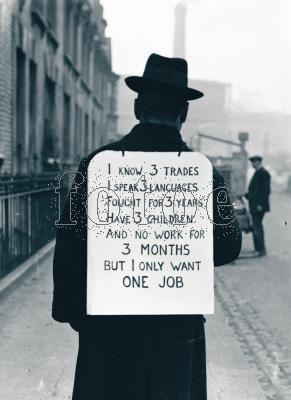 I KNOW 3 TRADES
I SPEAK 3 LANGUAGES
FOUGHT FOR 3 YEARS
HAVE 3 CHILDREN
AND NO WORK FOR
3 MONTHS
BUT I ONLY WANT
ONE JOB
fototeca